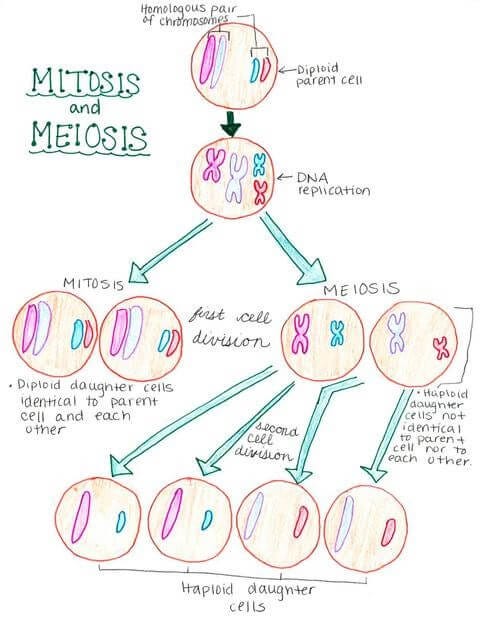 Homologous pair
of chromosomes
MITOSIS
and
MEIOSIS
Diploid
parent cell
DNA
replication
MITOSIS
MEIOSIS
first cell
division
• Diploid daughter cells
identical to parent
cell and each
other
• Haploid
daughter
cells not
identical
to parent
cell nor to
each other.
second
cell
division
Haploid daughter
cells